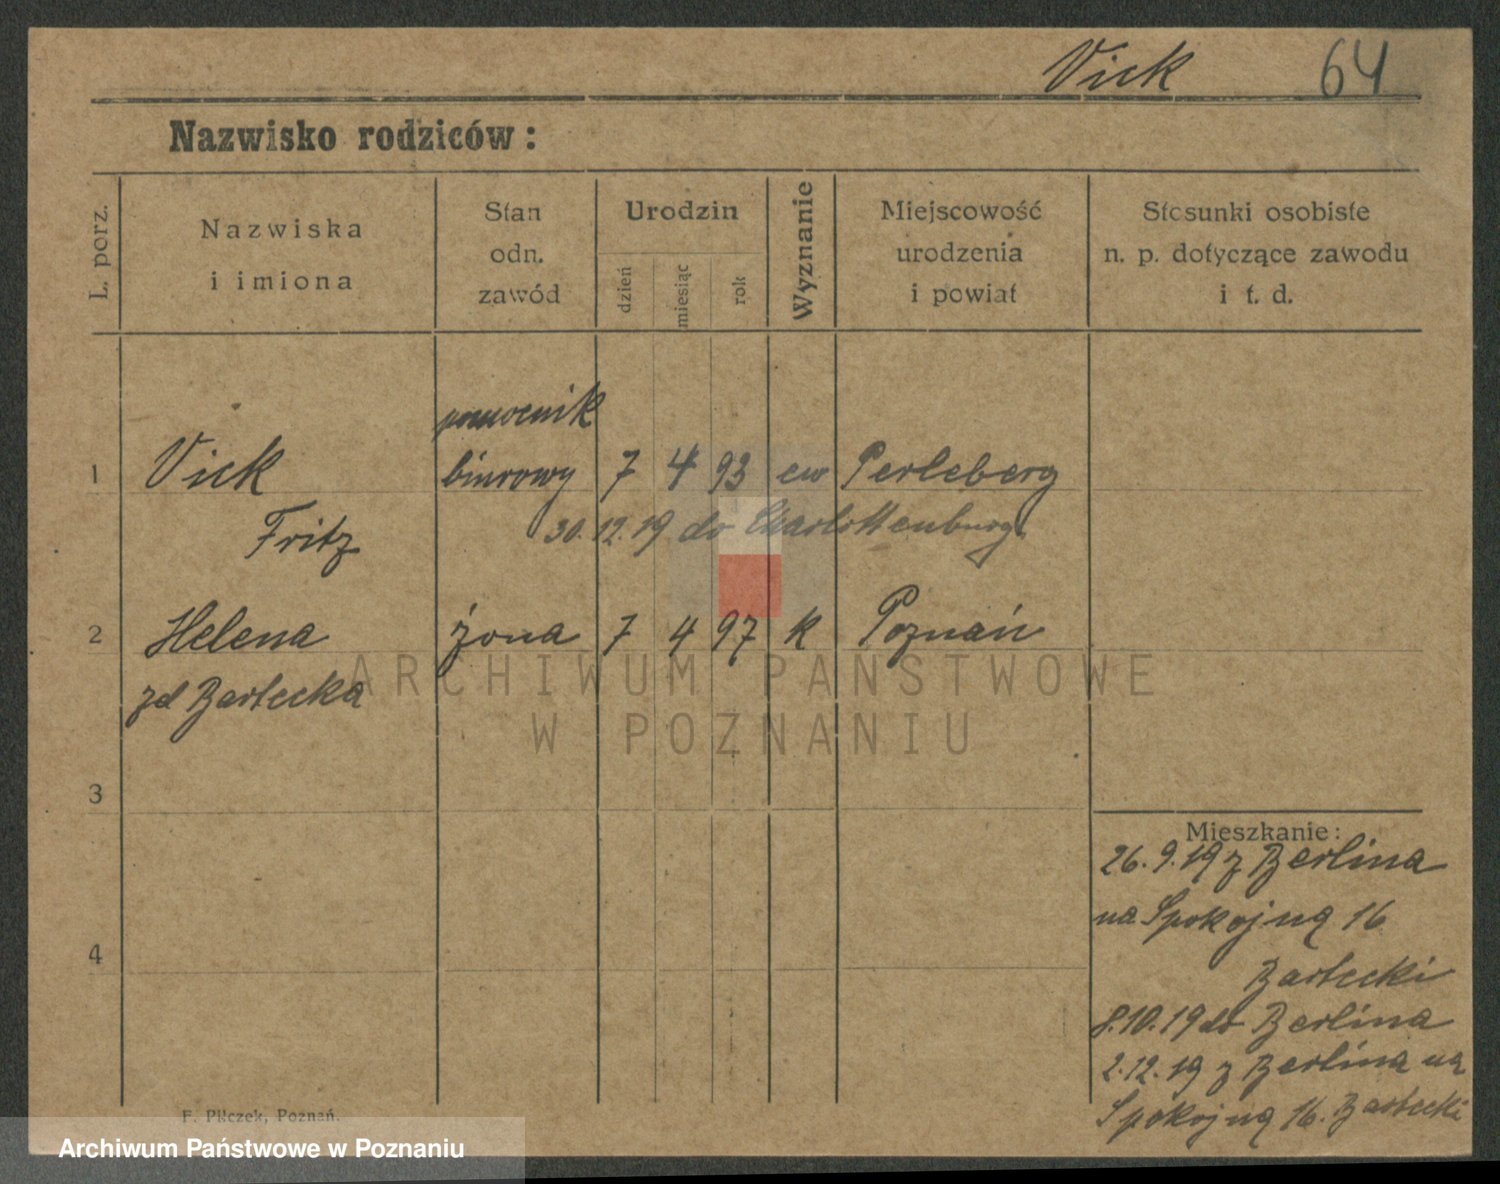 Vick 64
Nazwisko rodziców:
L. porz.
Nazwiska
i imiona
Stan
odn.
zawód
Urodzin
dzień
miesiąc
rok
Wyznanie
Miejscowość
urodzenia
i powiat
Stosunki osobiste
n. p. dotyczące zawodu
i t. d.
pomocnik
1 Vick biurowy 7 4 93 ew Perleberg
Fritz 30.12.19 do Charlottenburg
2 Helena żona 7 4 97 k Poznań
zd Bartecka
3
Mieszkanie:
26.9.19 z Berlina
na Spokojną 16
4
Bartecki
8.10.19 do Berlina
2.12.19 z Berlina na
Spokojną 16. Bartecki
F. Pilczek, Poznań.
ARCHIWUM PAŃSTWOWE
W POZNANIU
Archiwum Państwowe w Poznaniu